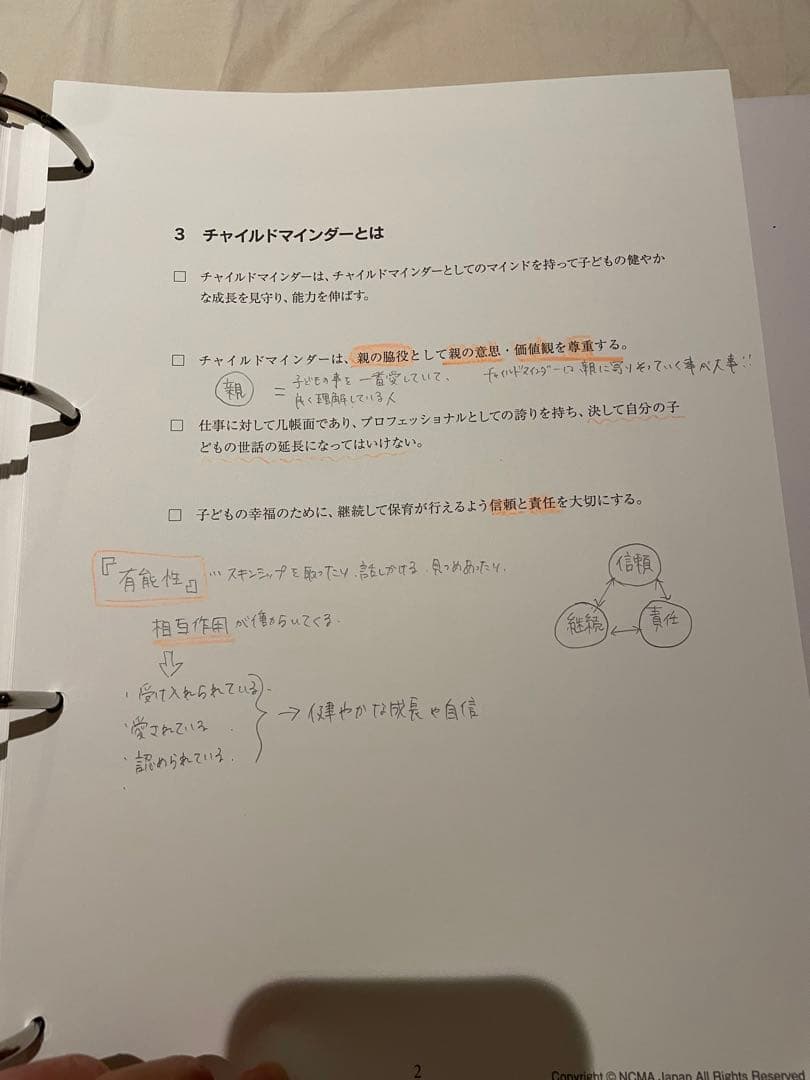 3 チャイルドマインダーとは
□ チャイルドマインダーは、チャイルドマインダーとしてのマインドを持って子どもの健やか
な成長を見守り、能力を伸ばす。
□ チャイルドマインダーは、親の脇役として親の意思・価値観を尊重する。
親 = 子どもの事を一番愛していて、
良く理解している人
チャイルドマインダーは親に寄りそっていく事が大事!!
□ 仕事に対して几帳面であり、プロフェッショナルとしての誇りを持ち、決して自分の子
どもの世話の延長になってはいけない。
□ 子どもの幸福のために、継続して保育が行えるよう信頼と責任を大切にする。
『有能性』…スキンシップを取ったり、話しかける、見つめあったり、
相互作用が働らいてくる。
⇩
・受け入れられている
・愛されている
・認められている
→ 健やかな成長や自信
信頼
継続 ↔ 責任
2
Copyright © NCMA Japan All Rights Reserved